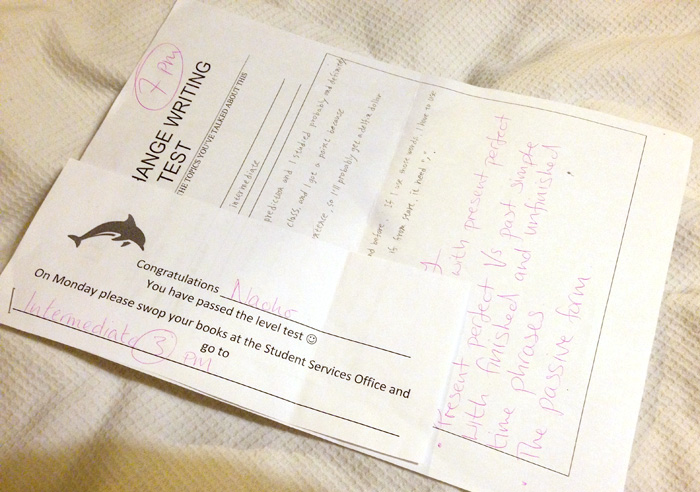 Congratulations Naoho
You have passed the level test ☺
On Monday please swop your books at the Student Services Office and
go to
Intermediate 3 PM
7 PM
HANGE WRITING
TEST
THE TOPICS YOU'VE TALKED ABOUT THIS
intermediate
prediction and I studied probably and definitely
class, and I got a point because
sentence. so I'll probably get a delta dollar
nd before. if I use those words, I have to use
with present perfect
• Present perfect Vs past simple
with finished and unfinished
time phrases
• The passive form